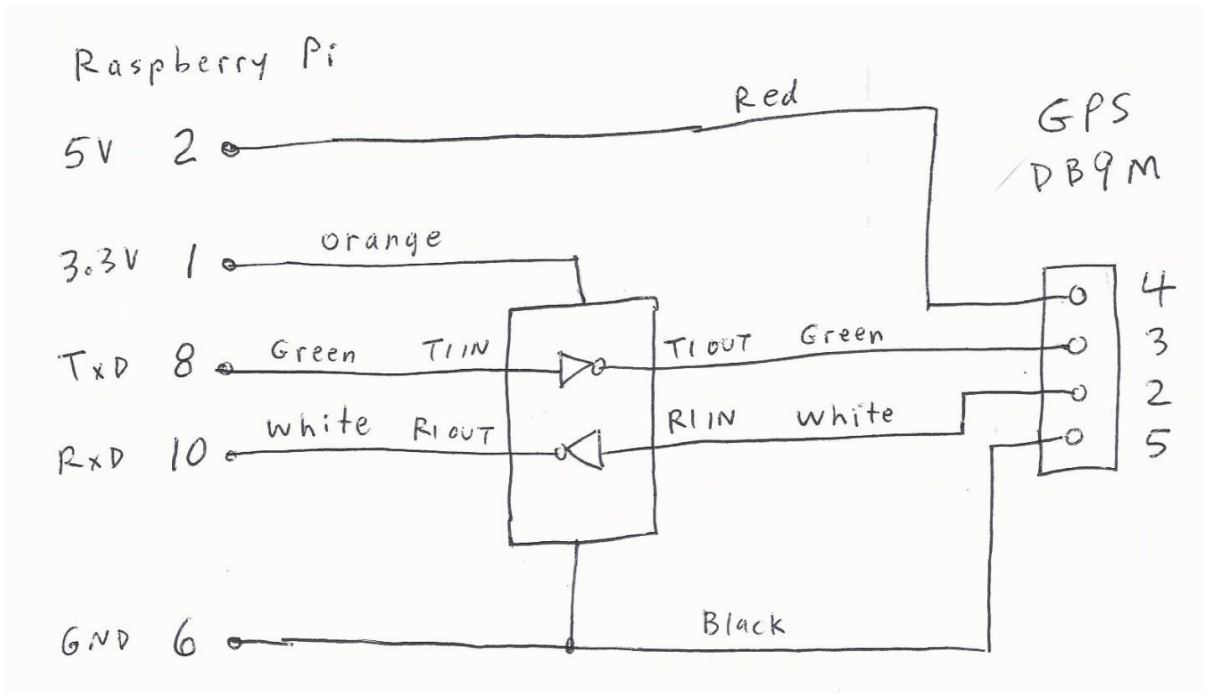 Raspberry Pi
Red
GPS
DB9M
5V 2
3.3V 1 orange
4
TxD 8 Green T1IN T1OUT Green 3
2
RxD 10 White R1OUT R1IN White
5
GND 6 Black